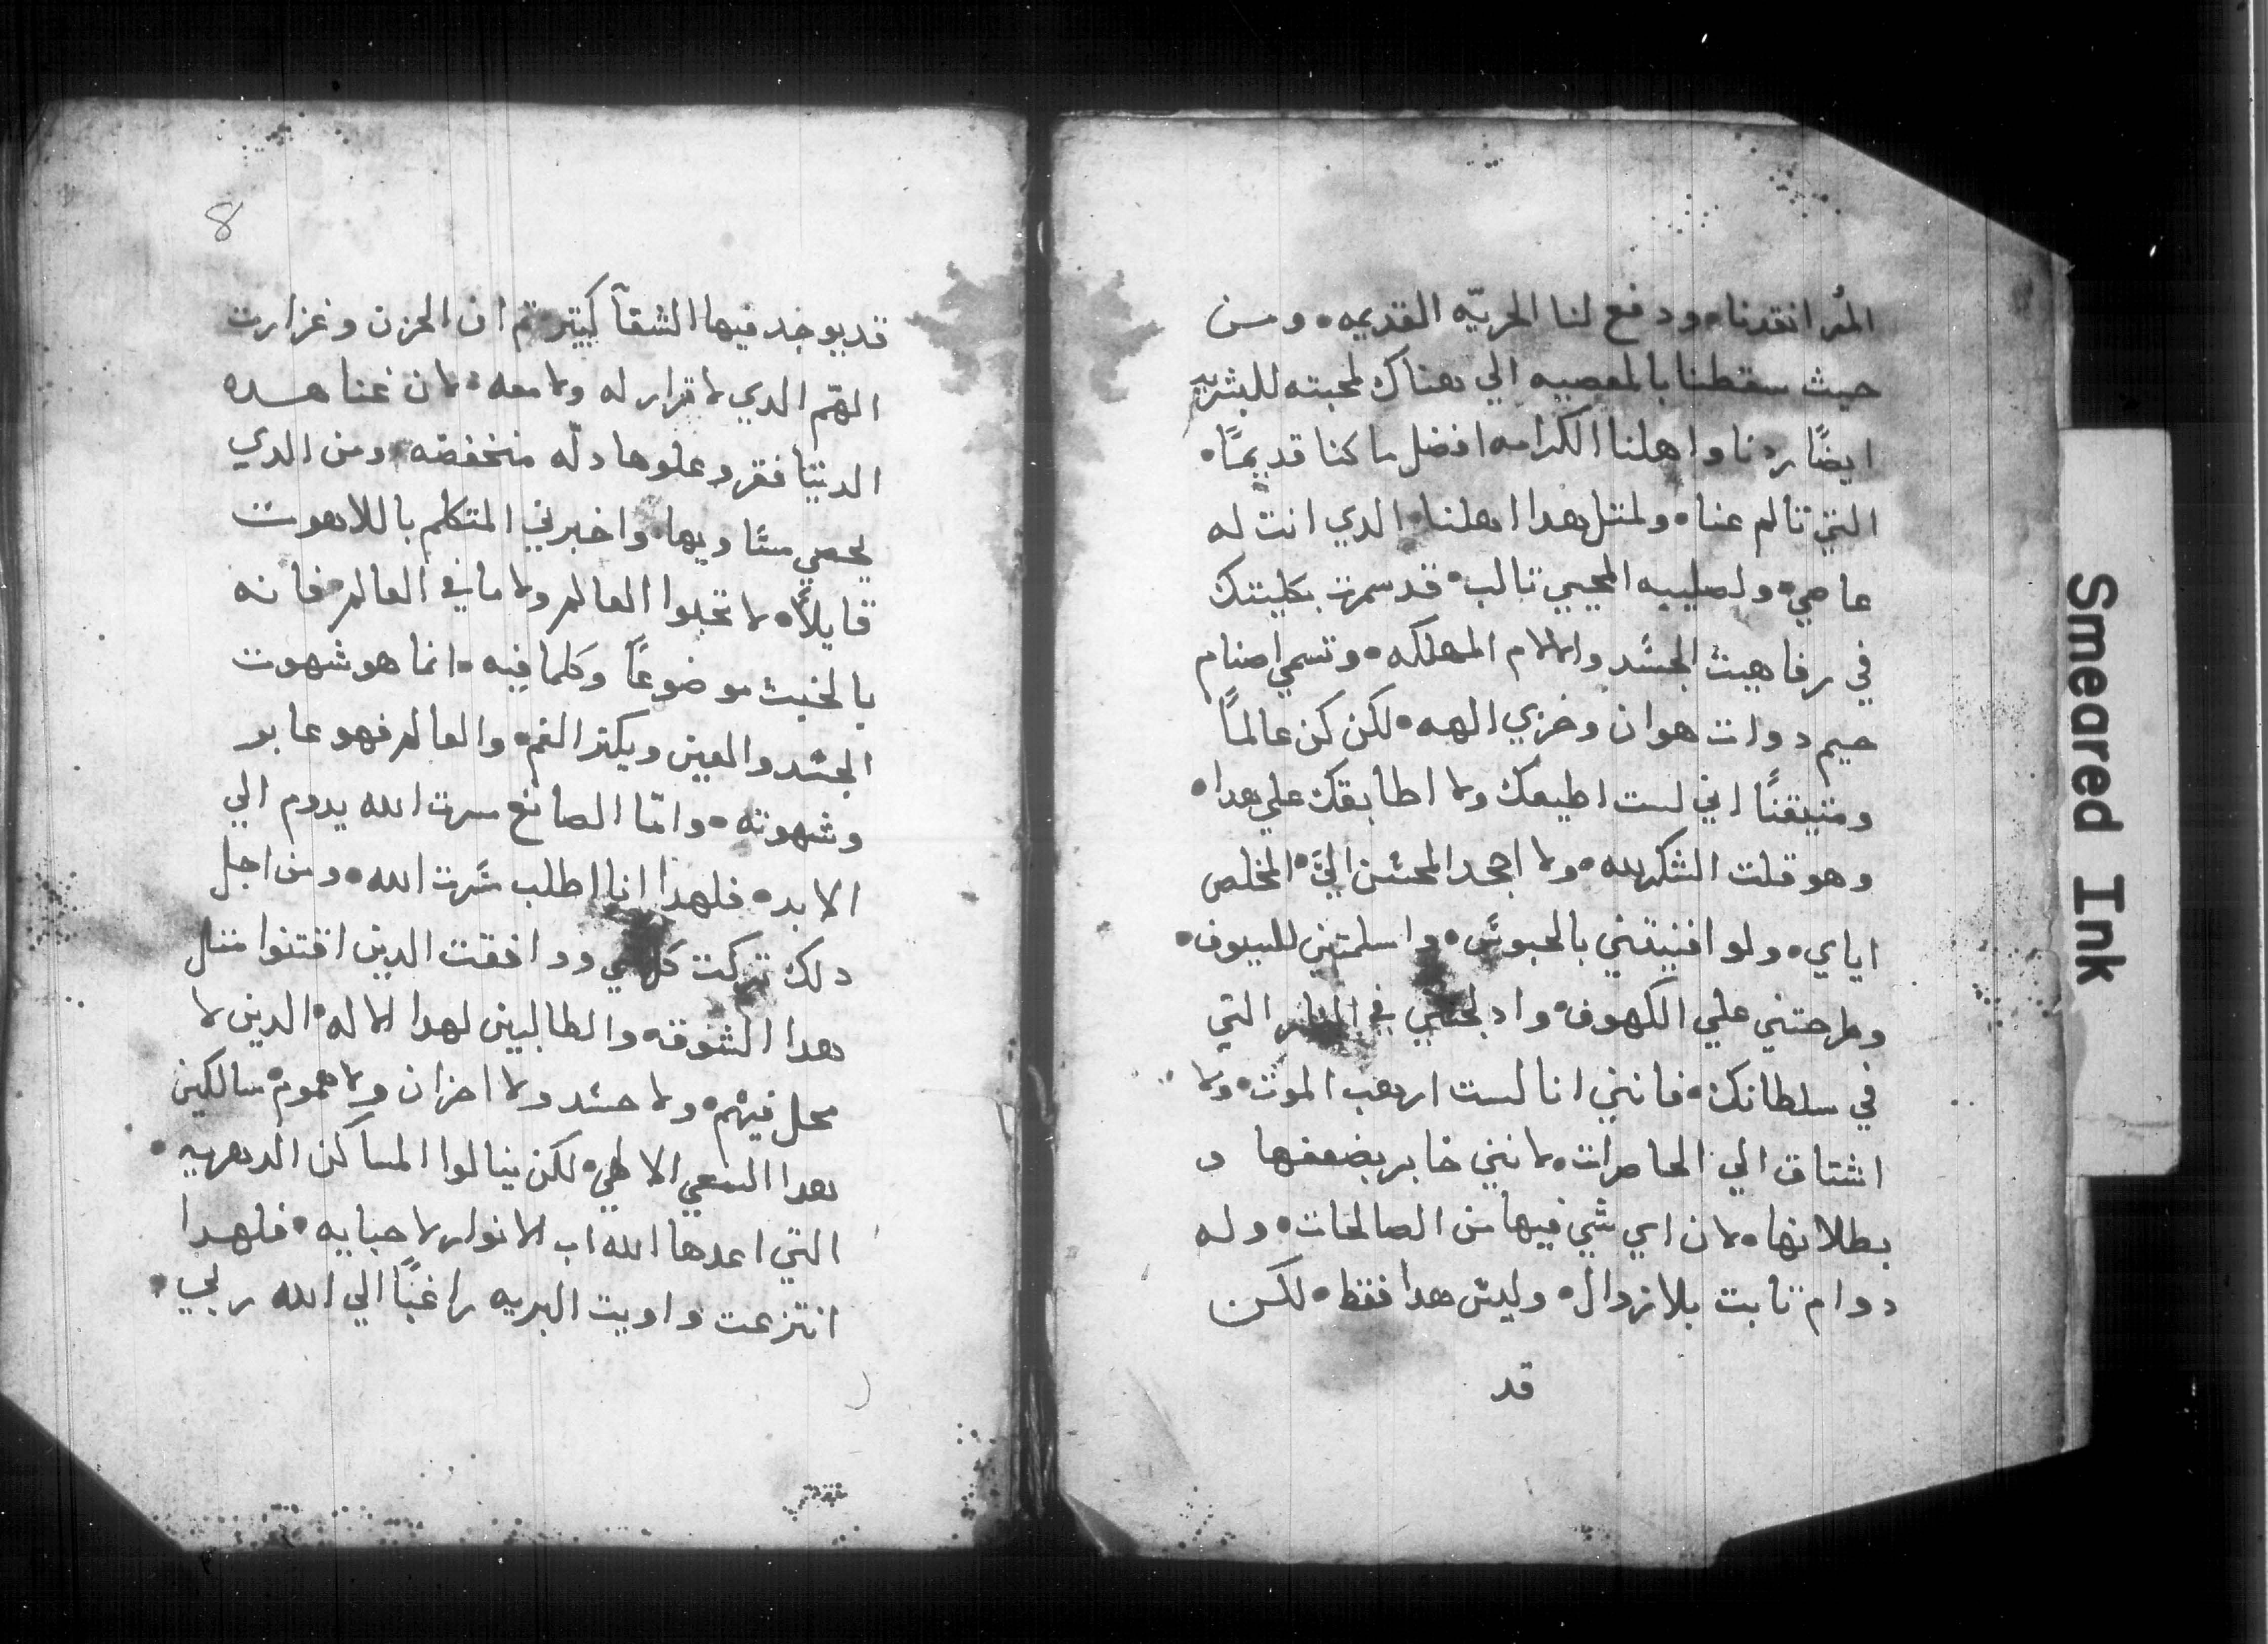 المُر انقدنا. ودفع لنا الحريّه القديمه. ومن
حيث سقطنا بالمعصيه الي هناك لمحبته للبشريه
ايضًا ردنا واهلنا الكرامه افضل ما كنا قديمًا.
التي تالم عنا. ولمثل هدا اهلنا. الدي انت له
عاصي. ولصليبه المحيي تالب. قد سمرت بكليتك
في رفاهيت الجسَد والالام المهلكه. وتسمي اصنام
حيم دوات هوان وخزي الهه. لكن كن عالمًا
ومتيقنًا اني لست اطيعك ولا اطابقك علي هدا.
وهو قلت الشكر لله. ولا اجحد المحسَن اليَّ. المخلص
اياي. ولو افنيتني بالحبوسَ. واسلمتني للسيوف.
وطرحتني علي الكهوف. وادلجتني في النار التي
في سلطانك. فانني انا لست ارهب الموت. ولا
اشتاق الي الحاضرات. لانني خابر بضعفها و
بطلانها. لان اي شي فيها من الصالحات. وله
دوام تابت بلا زوال. وليسَ هدا فقط. لكن
قد
8
قد يوجد فيها الشقآ كبيتر تم ان الحزن وغزارت
الهّم الدي لا قرار له ولا معه. لان غنا هده
الدنيا فقر وعلوها دلّه منخفضه. ومن الدي
يحصي مسَاويها. واخبرني المتكلم باللاهوت
قايلاً. لا تحبوا العالم ولا ما في العالم. فانه
بالخبث موضوعًا وكلما فيه. انما هو شهوت
الجسَد والعين ويكتر الغم. والعالم فهو عابر
وشهوته. وامّا الصانع مسرت الله يدوم الي
الابد. فلهدا انا اطلب مسَرت الله. ومن اجل
دلك تركت كل شي ووافقت الدين اقتنوا متل
هدا الشوقه والطالبين لهدا الاله. الدين لا
محل فيهم. ولا حسَد ولا احزان ولا هموم. سالكين
هدا السَعي الالهي. لكن ينالوا المساكن الدهريه.
التي اعدها الله اب الانوار لاحبايه. فلهدا
انتزعت واويت البريه راغبًا الي الله ربي.
Smeared Ink